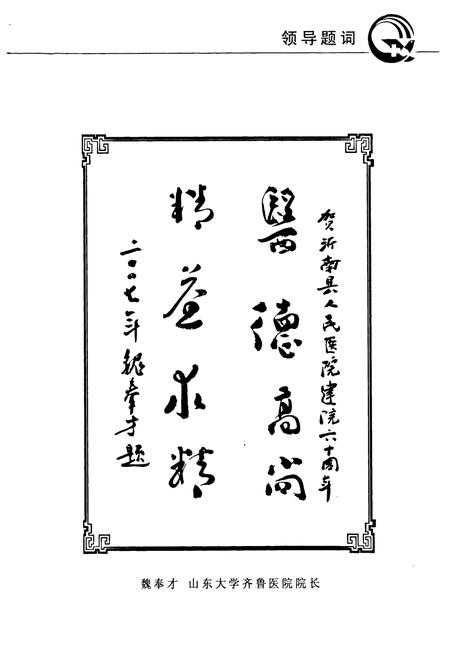 领导题词
贺沂南县人民医院建院六十周年
醫德高尚
精益求精
二〇〇七年魏奉才题
魏奉才 山东大学齐鲁医院院长